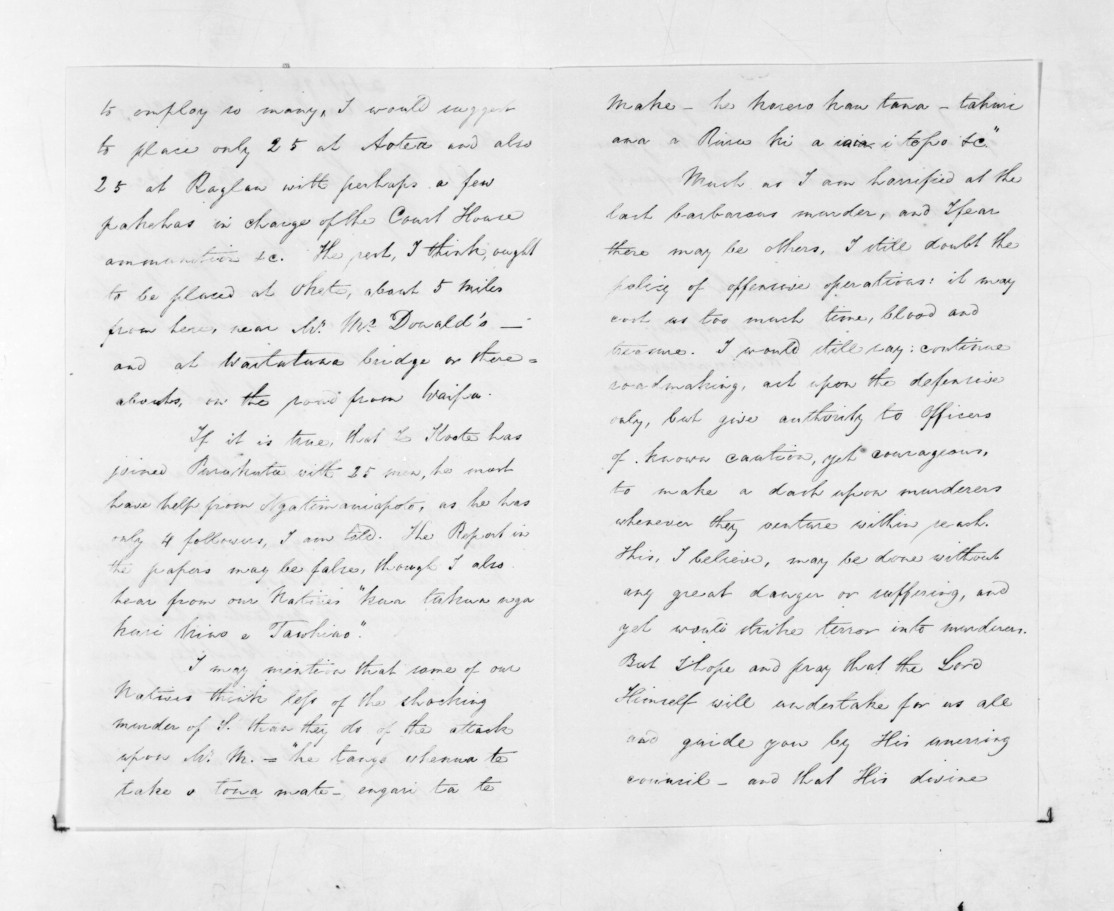 to employ so many, I would suggest
to place only 25 at Aotea and also
25 at Raglan with perhaps a few
pakehas in charge of the Court House
ammunition &c. The rest, I think, ought
to be placed at Okete, about 5 Miles
from here, near Mr. McDonald's —
and at Waitetuna bridge or there=
abouts, on the road from Waipa.
If it is true, that Te Kooti has
joined Purukutu with 25 men, he must
have help from Ngatimaniapoto, as he has
only 4 followers, I am told. The Report in
the papers may be false, though I also
hear from our Natives "kua tukua nga
kuri kino e Tawhiao".
I may mention that some of our
Natives think less of the shocking
murder of S. than they do of the attack
upon Mr. M. = "he tango whenua te
take o tona mate – engari ta te
Make – he korero kau tana –
ana a Riwai ki a i te po &c"
Much as I am horrified at the
last barbarous murder, and I fear
there may be others, I still doubt the
policy of offensive operations: it may
cost us too much time, blood and
treasure. I would still say: continue
roadmaking, act upon the defensive
only, but give authority to Officers
of known caution, yet courageous,
to make a dash upon murderers
whenever they venture within reach.
This, I believe, may be done without
any great danger or suffering, and
yet would strike terror into murderers.
But I hope and pray that the Lord
Himself will undertake for us all
and guide you by His unerring
council – and that His divine